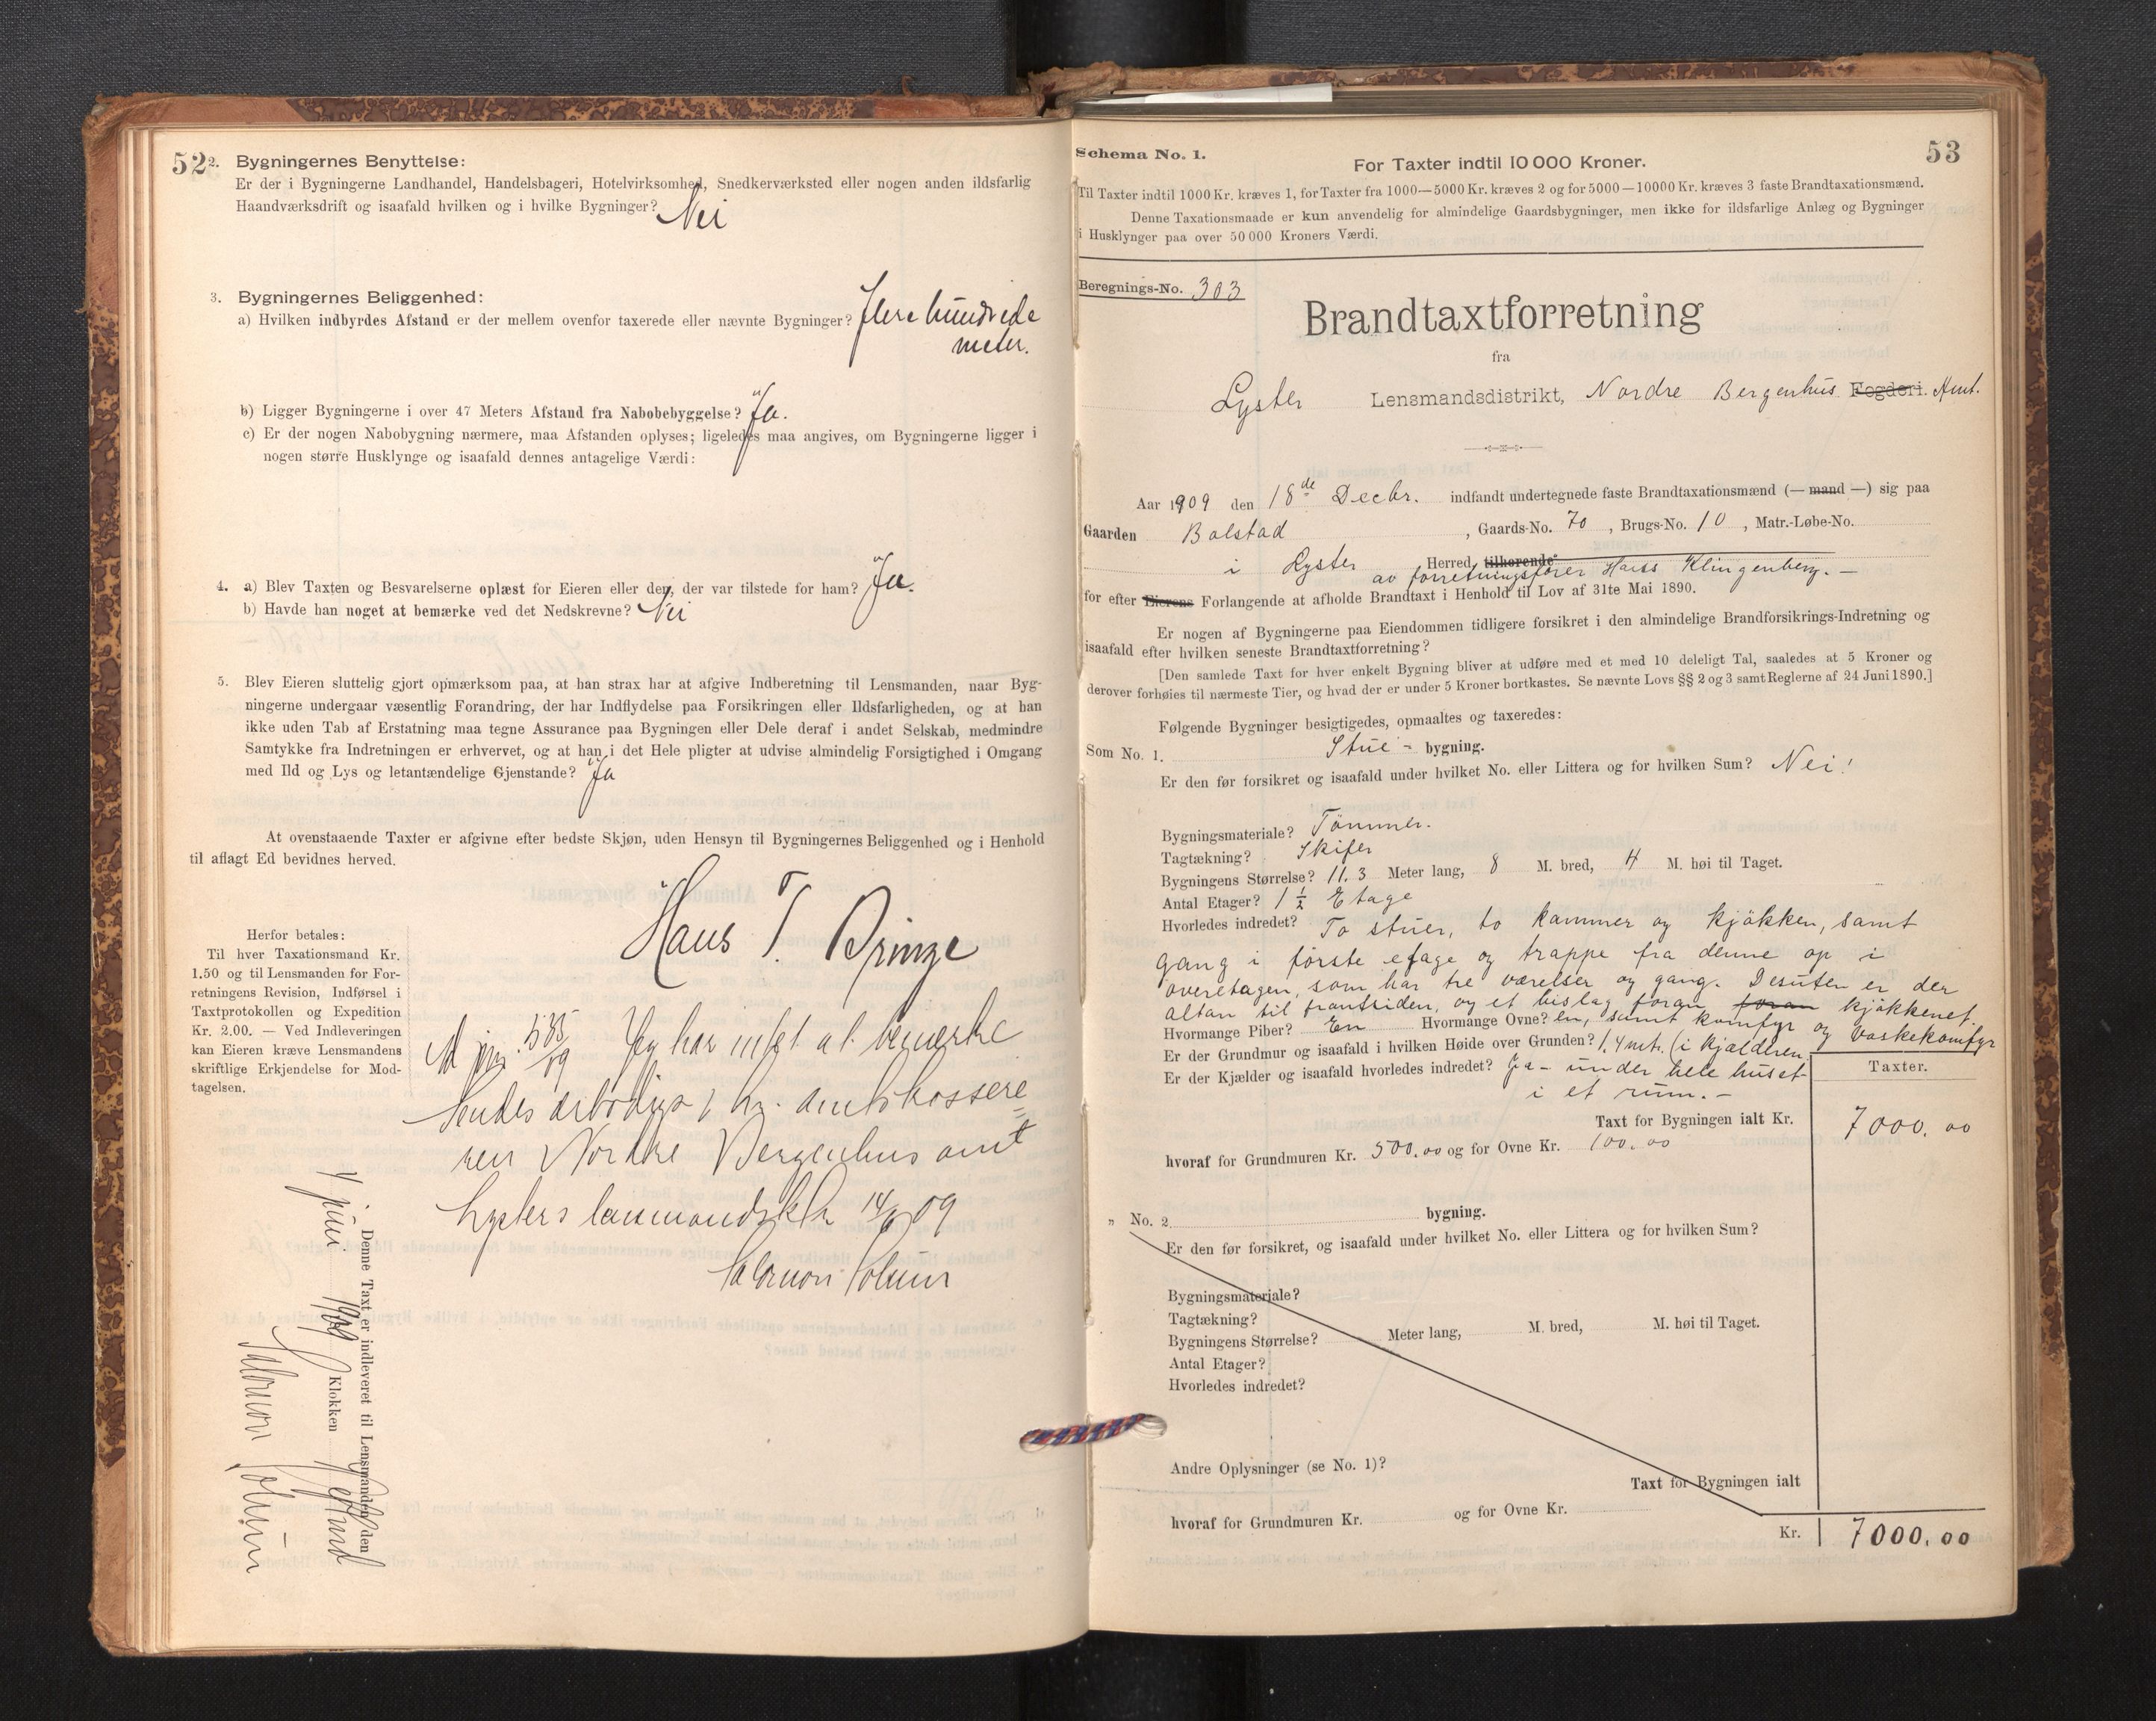 52
2. Bygningernes Benyttelse:
Er der i Bygningerne Landhandel, Handelsbageri, Hotelvirksomhed, Snedkerværksted eller nogen anden ildsfarlig
Haandværksdrift og isaafald hvilken og i hvilke Bygninger? Nei
3. Bygningernes Beliggenhed:
a) Hvilken indbyrdes Afstand er der mellem ovenfor taxerede eller nævnte Bygninger? flere hundrede
meter.
b) Ligger Bygningerne i over 47 Meters Afstand fra Nabobebyggelse? Ja.
c) Er der nogen Nabobygning nærmere, maa Afstanden oplyses; ligeledes maa angives, om Bygningerne ligger i
nogen større Husklynge og isaafald dennes antagelige Værdi:
4. a) Blev Taxten og Besvarelserne oplæst for Eieren eller den, der var tilstede for ham? Ja.
b) Havde han noget at bemærke ved det Nedskrevne? Nei
5. Blev Eieren sluttelig gjort opmærksom paa, at han strax har at afgive Indberetning til Lensmanden, naar Byg-
ningerne undergaar væsentlig Forandring, der har Indflydelse paa Forsikringen eller Ildsfarligheden, og at han
ikke uden Tab af Erstatning maa tegne Assurance paa Bygningen eller Dele deraf i andet Selskab, medmindre
Samtykke fra Indretningen er erhvervet, og at han i det Hele pligter at udvise almindelig Forsigtighed i Omgang
med Ild og Lys og letantændelige Gjenstande? Ja
At ovenstaaende Taxter er afgivne efter bedste Skjøn, uden Hensyn til Bygningernes Beliggenhed og i Henhold
til aflagt Ed bevidnes herved.
Hans T.
Herfor betales:
Til hver Taxationsmand Kr.
1.50 og til Lensmanden for For-
retningens Revision, Indførsel i
Taxtprotokollen og Expedition
Kr. 2.00. — Ved Indleveringen
kan Eieren kræve Lensmandens
skriftlige Erkjendelse for Mod-
tagelsen.
535/09 Jeg har intet at bemerke
Sendes ærbødigst hr. amtskassere
ren Nordre Bergenhus amt
Lysters lensmandsktr 14/6 09
Salomon Solum
Denne Taxt er indleveret til Lensmanden den
4 juni 1909 Klokken
Salomon Solum
53
Schema No. 1.
For Taxter indtil 10 000 Kroner.
Til Taxter indtil 1000 Kr. kræves 1, for Taxter fra 1000—5000 Kr. kræves 2 og for 5000—10000 Kr. kræves 3 faste Brandtaxationsmænd.
Denne Taxationsmaade er kun anvendelig for almindelige Gaardsbygninger, men ikke for ildsfarlige Anlæg og Bygninger
i Husklynger paa over 50 000 Kroners Værdi.
Beregnings-No. 303
Brandtaxtforretning
fra
Lyster Lensmandsdistrikt, Nordre Bergenhus Fogderi. Amt.
Aar 1909 den 18de Decbr. indfandt undertegnede faste Brandtaxationsmænd (— mand —) sig paa
Gaarden Bolstad, Gaards-No. 70, Brugs-No. 10, Matr.-Løbe-No.
i Lyster Herred tilhørende
av forretningsfører Hans Klingenberg. —
for efter Eierens Forlangende at afholde Brandtaxt i Henhold til Lov af 31te Mai 1890.
Er nogen af Bygningerne paa Eiendommen tidligere forsikret i den almindelige Brandforsikrings-Indretning og
isaafald efter hvilken seneste Brandtaxtforretning?
[Den samlede Taxt for hver enkelt Bygning bliver at udføre med et med 10 deleligt Tal, saaledes at 5 Kroner og
derover forhøies til nærmeste Tier, og hvad der er under 5 Kroner bortkastes. Se nævnte Lovs §§ 2 og 3 samt Reglerne af 24 Juni 1890.]
Følgende Bygninger besigtigedes, opmaaltes og taxeredes:
Som No. 1. Stue - bygning.
Er den før forsikret og isaafald under hvilket No. eller Littera og for hvilken Sum? Nei!
Bygningsmateriale? Tømmer.
Tagtækning? Skifer
Bygningens Størrelse? 11.3 Meter lang, 8 M. bred, 4 M. høi til Taget.
Antal Etager? 1 ½ Etage
Hvorledes indredet? To stuer, to kammer og kjøkken, samt
gang i første etage og trappe fra denne op i
overetagen, som har tre værelser og gang. Desuten er der
altan til frontsiden, og et bislag foran foran kjøkkenet.
Hvormange Piber? En Hvormange Ovne? en, samt komfyr og vaskekomfyr
Er der Grundmur og isaafald i hvilken Høide over Grunden? 1,4 mtr. (i kjælderen.
Er der Kjælder og isaafald hvorledes indredet? Ja - under hele huset -
i et rum. -
Taxter.
Taxt for Bygningen ialt Kr. 7000,00
hvoraf for Grundmuren Kr. 500,00 og for Ovne Kr. 100,00
„ No. 2 bygning.
Er den før forsikret, og isaafald under hvilket No. eller Littera og for hvilken Sum?
Bygningsmateriale?
Tagtækning?
Bygningens Størrelse? Meter lang, M. bred, M. høi til Taget.
Antal Etager?
Hvorledes indredet?
Andre Oplysninger (se No. 1)?
Taxt for Bygningen ialt
hvoraf for Grundmuren Kr. og for Ovne Kr.
Kr. 7000,00